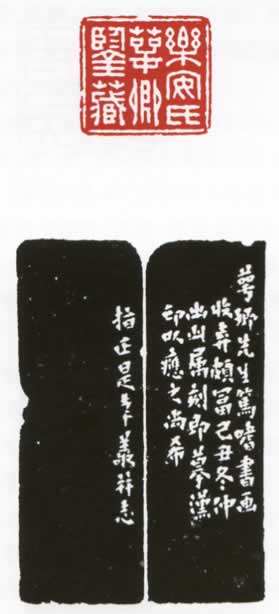 樂安氏
萼卿
鑒藏
萼卿先生篤嗜書画
收弆頗富己丑冬仲
属刻即摹漢
印以應之尚希
指正是幸祥志